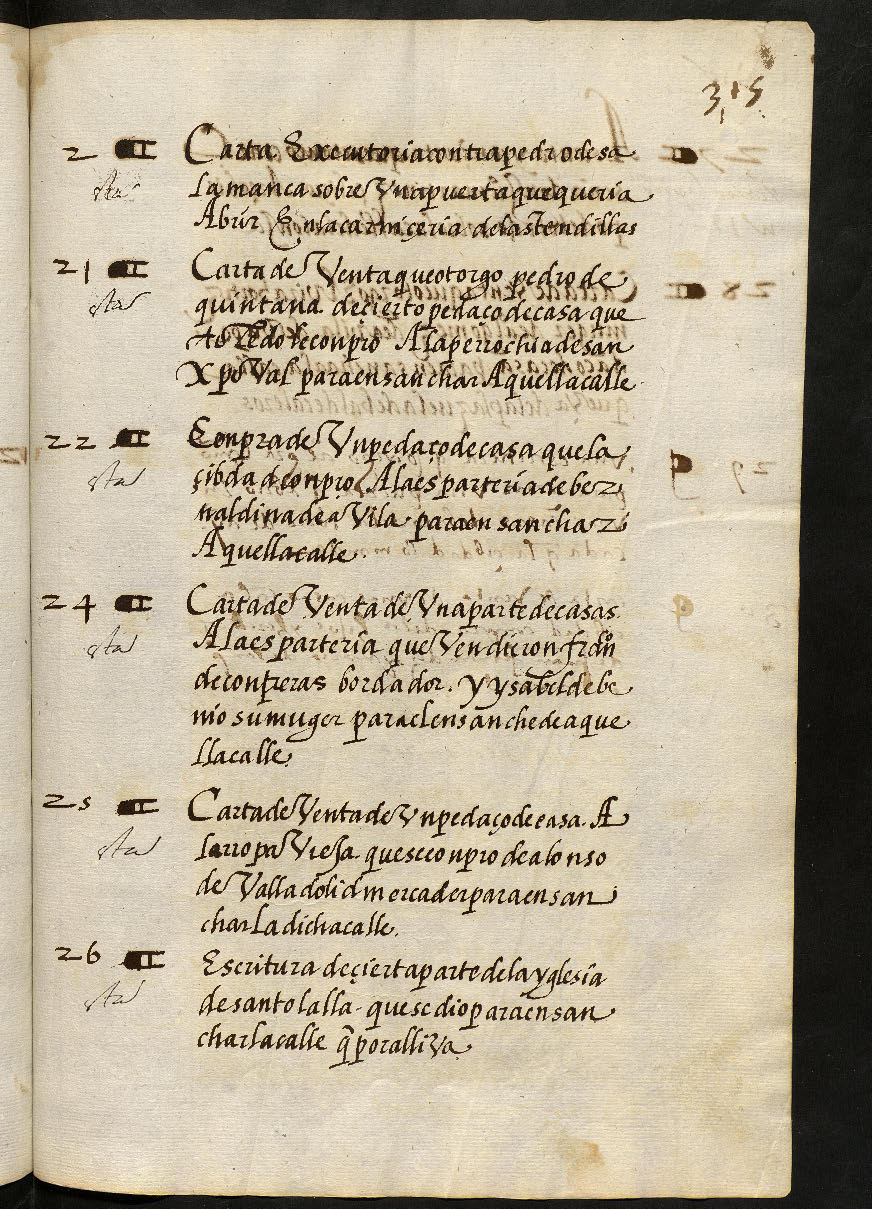 315
2 Carta Executoria contra pedro de sa
sta lamanca sobre Vna puerta que queria
Abrir En la carniçeria de las tendillas
21 Carta de Venta que otorgo pedro de
sta quintana de çierto pedaço de casa que
to̅ledo le conpro A la perrochia de san
Xpoval para ensanchar Aquella calle
22 Conpra de Vn pedaço de casa que la
sta çibdad conpro A la esparteria de ber
naldina de aVila para ensanchar
Aquella calle.
24 Carta de Venta de Vna parte de casas
sta A la esparteria que Vendieron fran
de contreras bordador. y ysabel de be
nio su muger para el ensanche de aque
lla calle.
25 Carta de Venta de Vn pedaço de casa. A
sta la rropa Vieja que se conpro de alonso
de Valladolid mercader para ensan
char la dicha calle.
26 Escritura de çierta parte de la yglesia
sta de santolalla. que se dio para ensan
char la calle q̃ por alli Va.